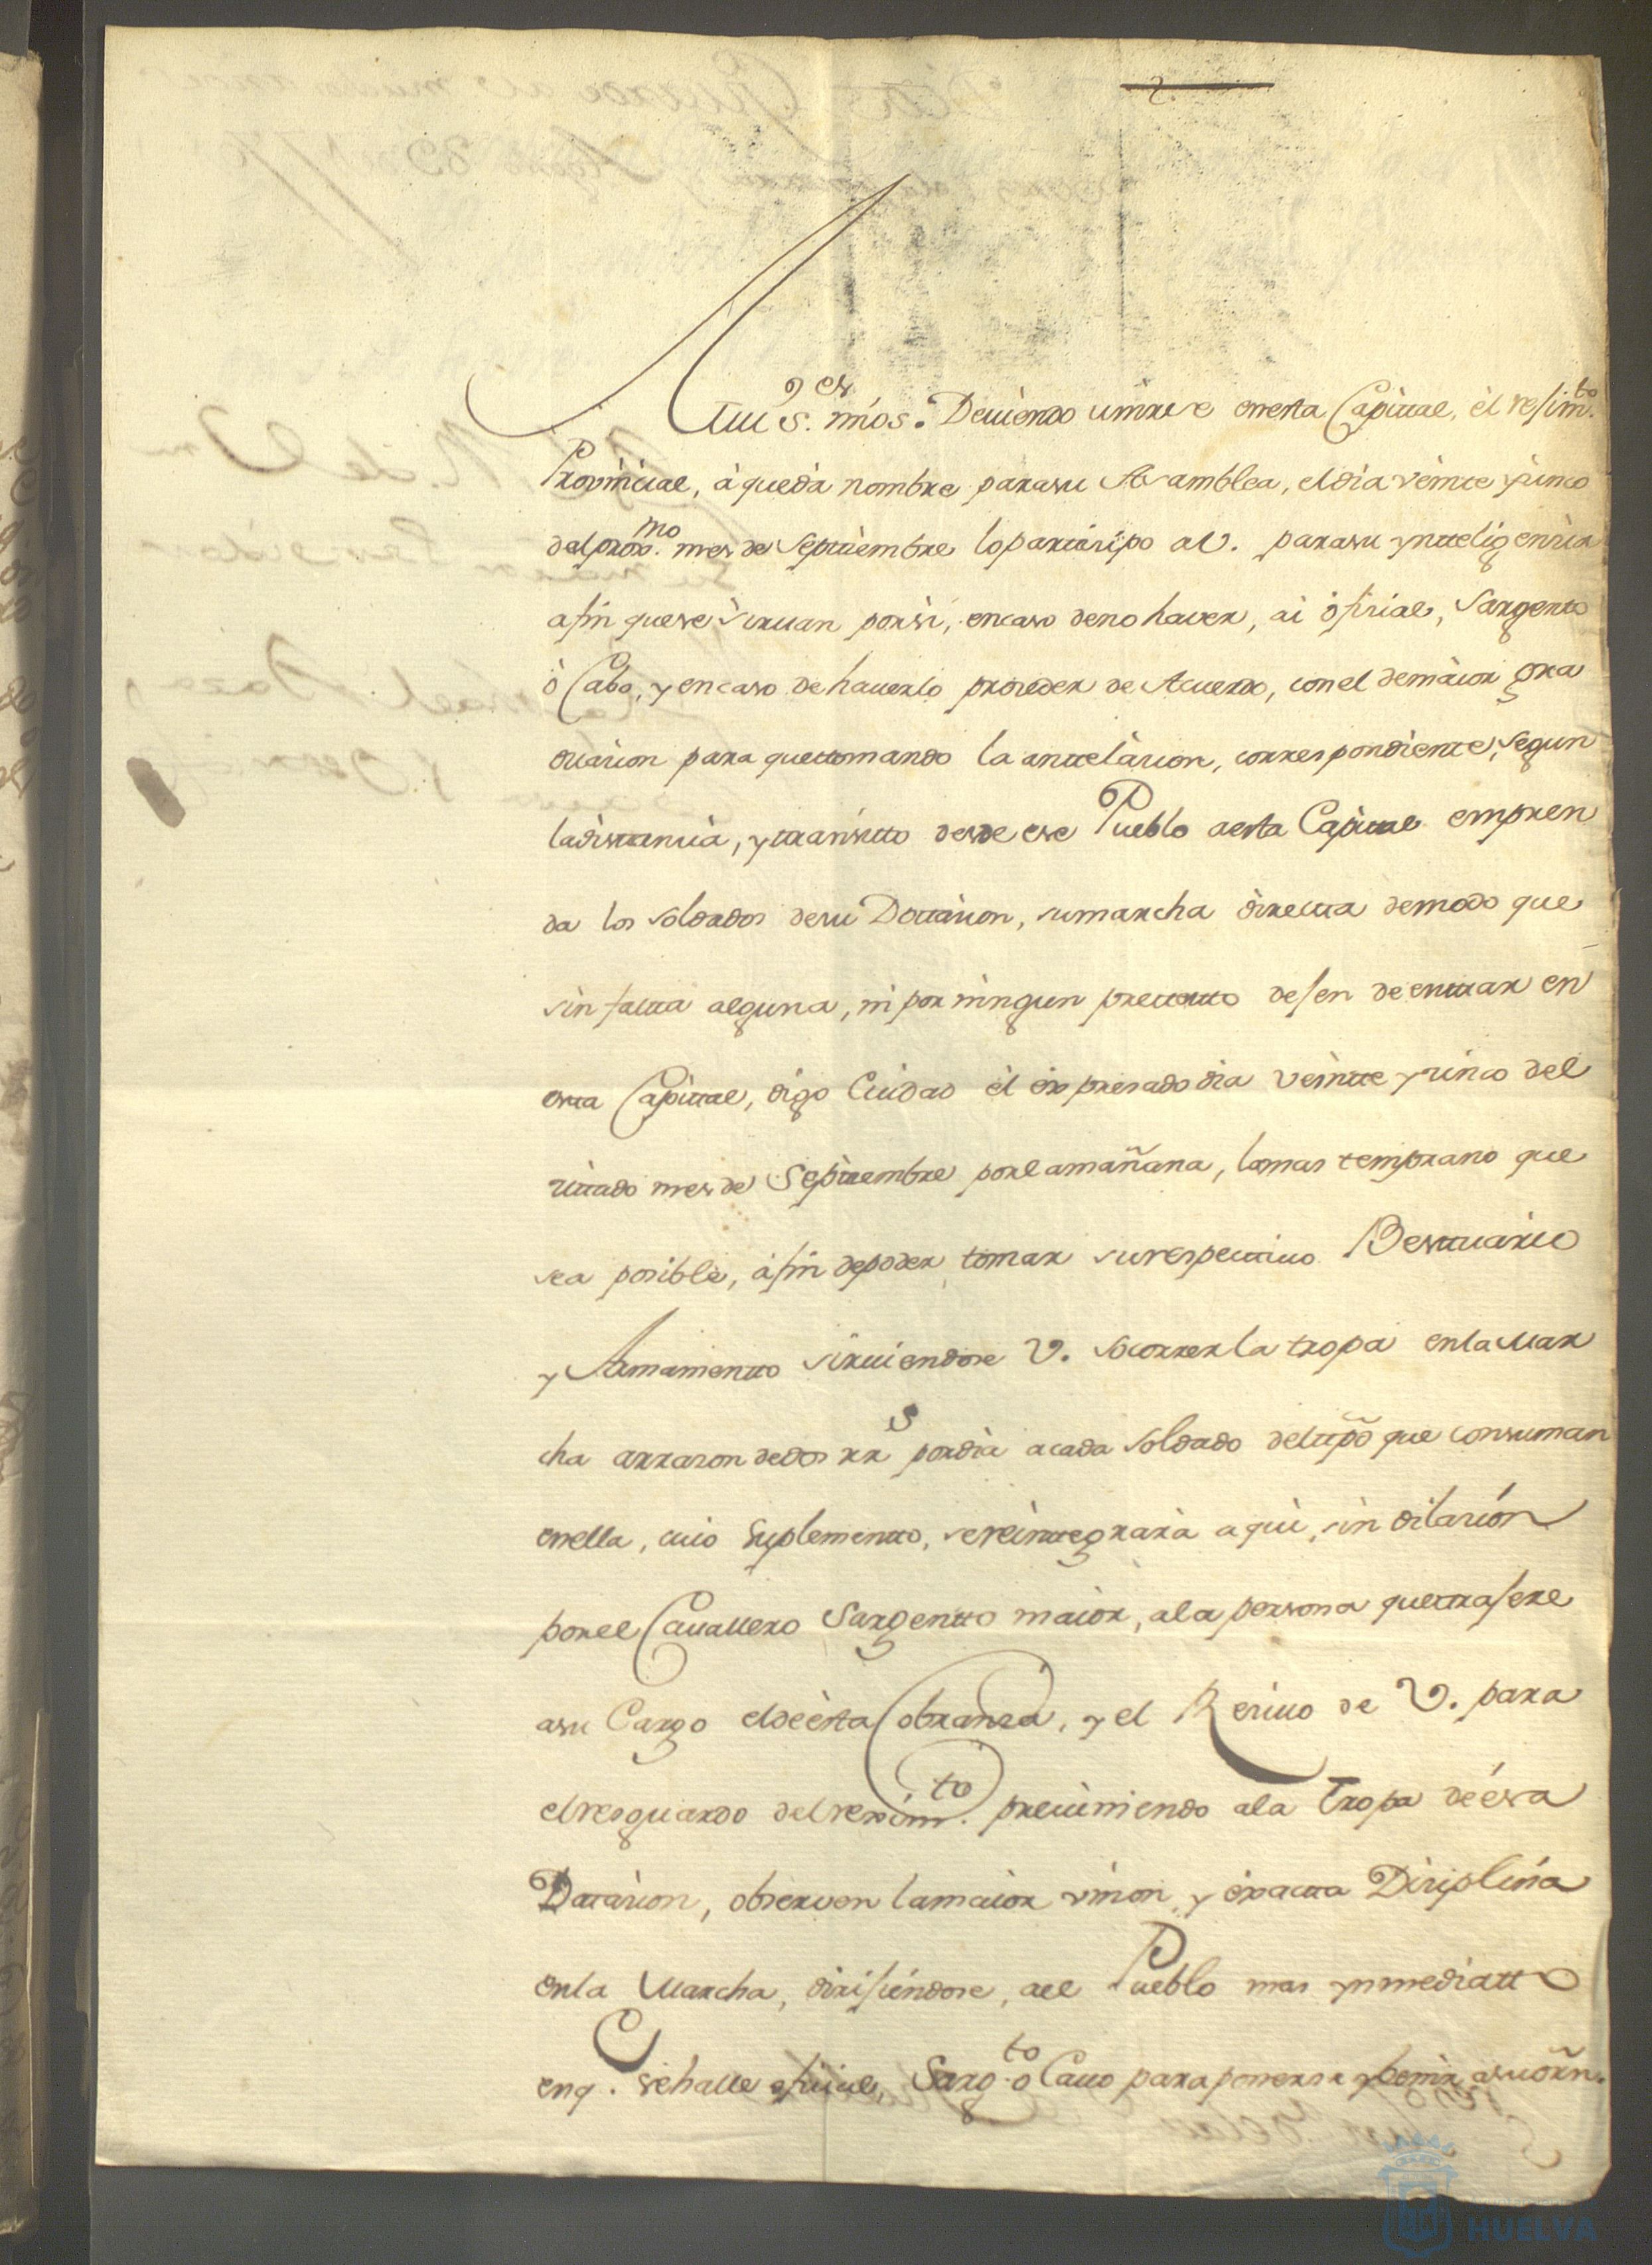 2.
Mui S.res mios. Deuiendo unirse en esta Capittal, èl rejim.to
Provincial, à que dà nombre para su Asamblea, el dia veinte y cinco
del prox.mo mes de Septtiembre lo partticipo a V. para su ynttelig encia
a fin que se siruan por si, en caso de no hauer, ai òficial, Sargento
ò Cabo, y en caso de hauerlo proceder de Acuerdo, con el de màior gra
duàcion para que ttomando la anttelàcion, correspondientte, segun
la disttancia, y ttransitto desde ese Pueblo a esta Capittal empren
da los soldados de su Dottàcion, su marcha directta de modo que
sin faltta alguna, ni por ningun pretextto dejen de enttrar en
estta Capittal, digo Ciudad èl expresado dia veintte y cinco del
cittado mes de Septtiembre por la mañana, lo mas temprano que
sea posible, à fin de poder tomar su respecttiuo Besttuàrio
y Armamentto siruiendose V. socorrer la tropa en la Mar
cha arrazon de dos rr.s por dia a cada soldado del ttpõ que consuman
en ella, cuio suplementto, se reinttegrarà aqui, sin dilacion
por el Cauallero Sargentto maior, a la persona que ttrajere
a su Cargo el de èsta Cobranza, y el Reciuo de V. para
el resguardo del rexim.to preuiniendo a la Tropa de ésa
Dotàcion, obseruen la maior vnion, y èxactta Diciplina
en la Marcha, dirijiéndose, al Pueblo mas ynmediatto
en q. se halle oficial, Sarg.to o Cauo para ponerse y benir a su orñ.
HUELVA